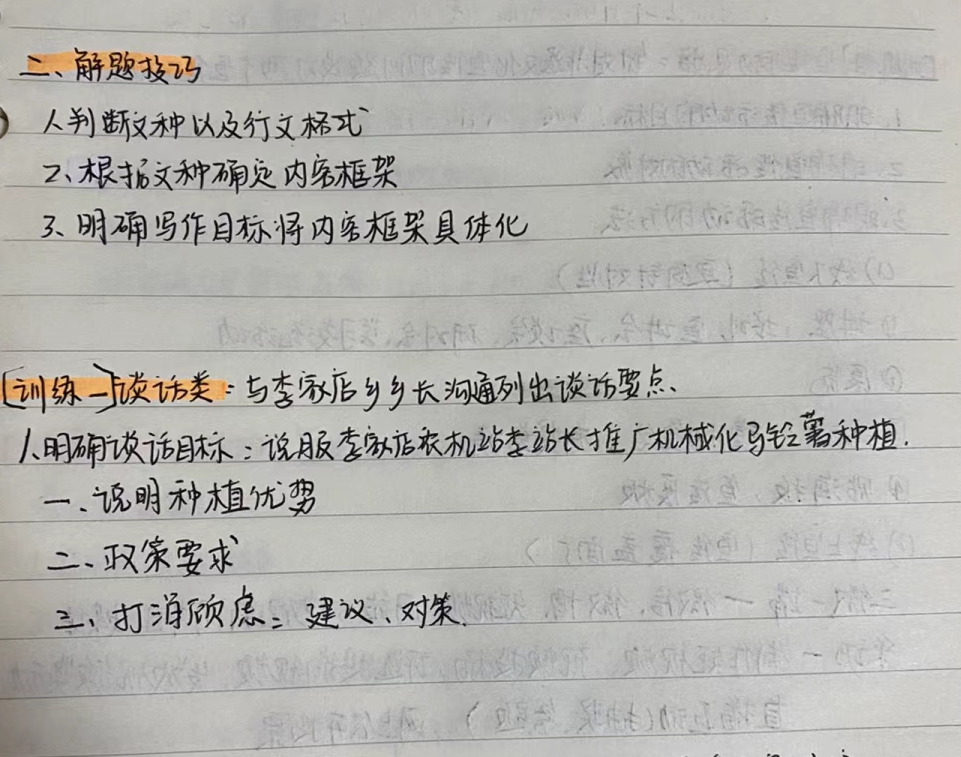 二、解题技巧
1、判断文种以及行文格式
2、根据文种确定内容框架
3、明确写作目标将内容框架具体化
[训练一]谈话类：与李家店乡乡长沟通列出谈话要点、
1、明确谈话目标：说服李家店农机站李站长推广机械化马铃薯种植.
一、说明种植优势
二、政策要求
三、打消顾虑：建议、对策.